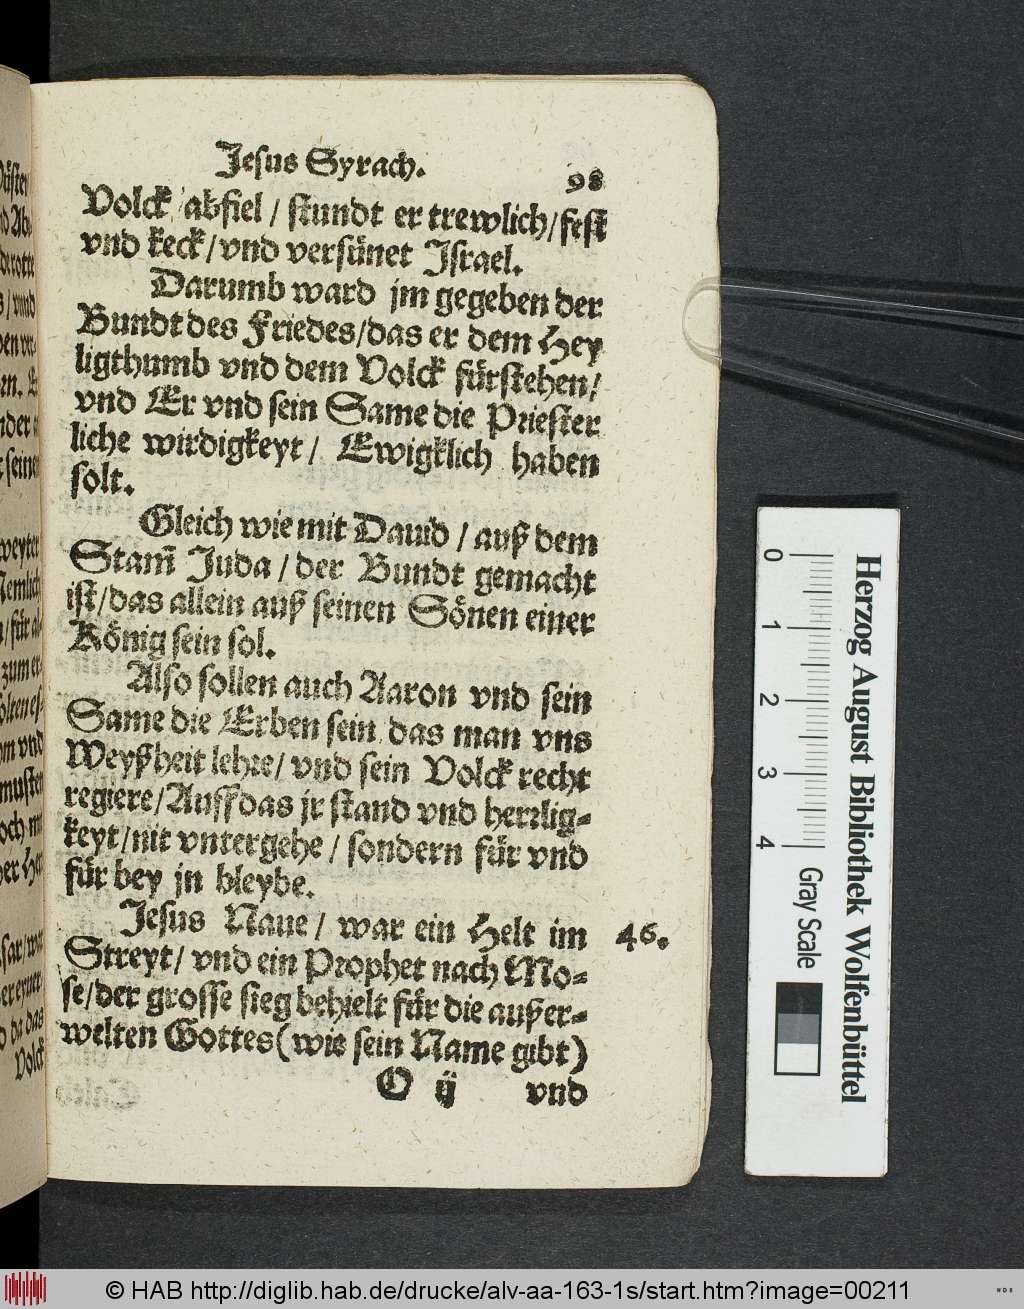 Jesus Syrach.
98
Volck abfiel / stundt er trewlich/fest
vnd keck/vnd versünet Israel.
Darumb ward jm gegeben der
Bundt des Friedes/das er dem Hey
ligthumb vnd dem Volck fürstehen/
vnd Er vnd sein Same die Priester
liche wirdigkeyt / Ewigklich haben
solt.
Gleich wie mit Dauid / auß dem
Stam̃ Juda / der Bundt gemacht
ist/das allein auß seinen Sönen einer
König sein sol.
Also sollen auch Aaron vnd sein
Same die Erben sein das man vns
Weyßheit lehre/ vnd sein Volck recht
regiere/Auff das jr stand vnd herrlig-
keyt/nit vntergehe / sondern für vnd
für bey jn bleybe.
Jesus Naue / war ein Helt im
46.
Streyt/ vnd ein Prophet nach Mo-
se/der grosse sieg behielt für die außer-
welten Gottes (wie sein Name gibt)
O ij vnd
Volck
0 1 2 3 4
Gray Scale
Herzog August Bibliothek Wolfenbüttel
© HAB http://diglib.hab.de/drucke/alv-aa-163-1s/start.htm?image=00211